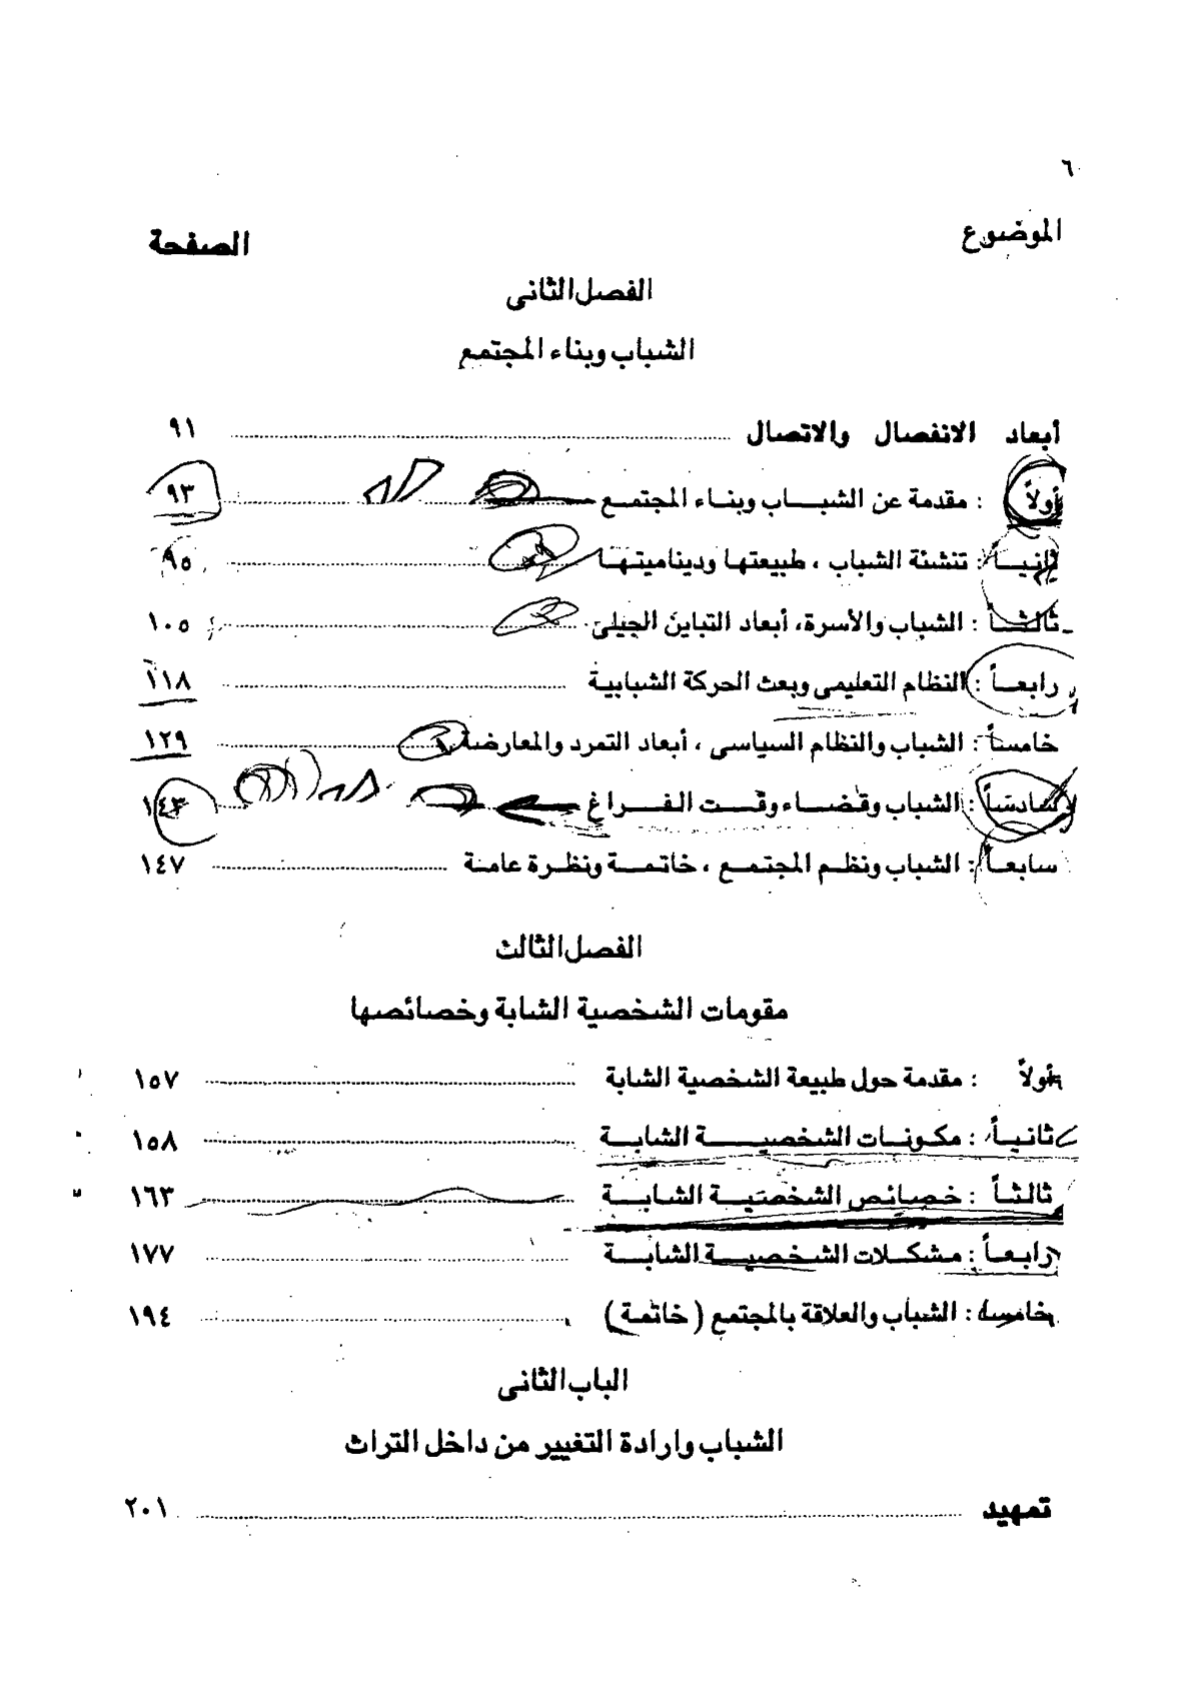 ٦
الموضوع الصفحة
الفصل الثانى
الشباب وبناء المجتمع
أبعاد الانفصال والاتصال ٩١
أولاً : مقدمة عن الشباب وبناء المجتمع ٩٣
ثانيـاً : تنشئة الشباب ، طبيعتها وديناميتها ٩٥
ثالثـاً : الشباب والأسرة، أبعاد التباين الجيلى ١٠٥
رابعـاً : النظام التعليمى وبعث الحركة الشبابية ١١٨
خامساً : الشباب والنظام السياسى ، أبعاد التمرد والمعارضة ١٢٩
سادساً : الشباب وقضاء وقت الفراغ ١٤٣
سابعـاً : الشباب ونظم المجتمع ، خاتمة ونظرة عامة ١٤٧
الفصل الثالث
مقومات الشخصية الشابة وخصائصها
أولاً : مقدمة حول طبيعة الشخصية الشابة ١٥٧
ثانيـاً : مكونات الشخصية الشابة ١٥٨
ثالثـاً : خصائص الشخصية الشابة ١٦٣
رابعـاً : مشكلات الشخصية الشابة ١٧٧
خامساً : الشباب والعلاقة بالمجتمع ( خاتمة ) ١٩٤
الباب الثانى
الشباب وارادة التغيير من داخل التراث
تمهيد ٢٠١